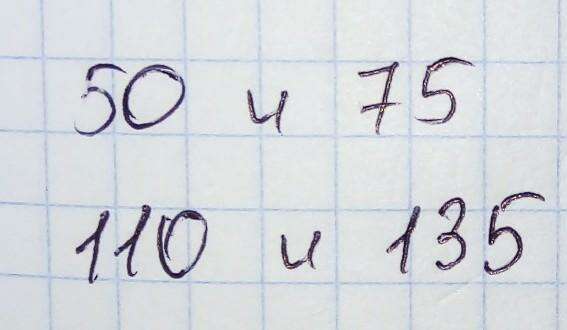 50 и 75
110 и 135